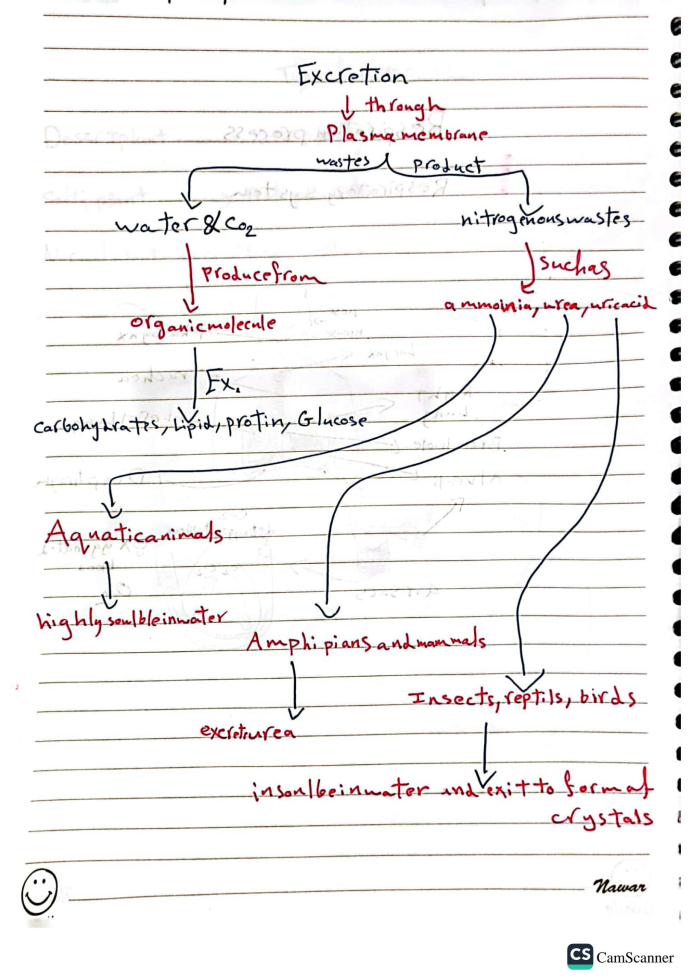 Excretion
through
Plasma membrane
wastes product
water & CO2
nitrogenous wastes
Produce from
such as
organic molecule
ammoinia, urea, uric acid
Ex.
carbohydrates, Lipid, protin, Glucose
Aquatic animals
highly soulble in water
Amphipians and mammals
Insects, reptils, birds
excret urea
insoulbe in water and exit to form of
crystals
Nawar
CS CamScanner